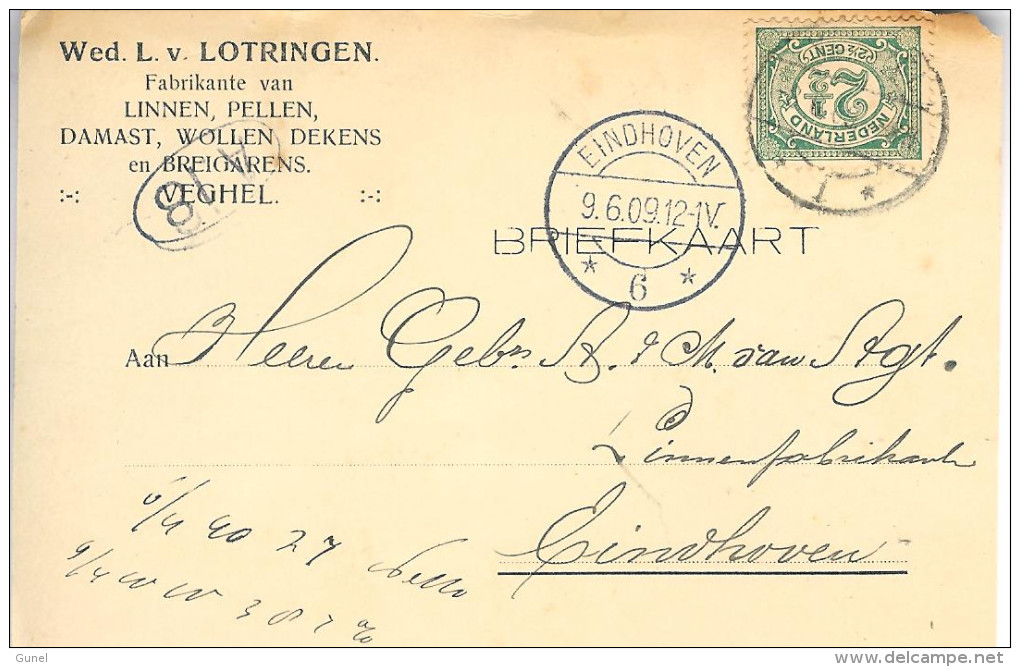 Wed. L. v. LOTRINGEN.
Fabrikante van
LINNEN, PELLEN,
DAMAST, WOLLEN DEKENS
en BREIGARENS.
:-: VEGHEL. :-:
2½
NEDERLAND
(2½ CENT)
1
EINDHOVEN
9.6.09.12-1V.
6
BRIEFKAART
Aan Heeren Gebrs A. & M. van Agt.
Linnenfabrikant
Eindhoven
40 27
Gunel
delcampe.net